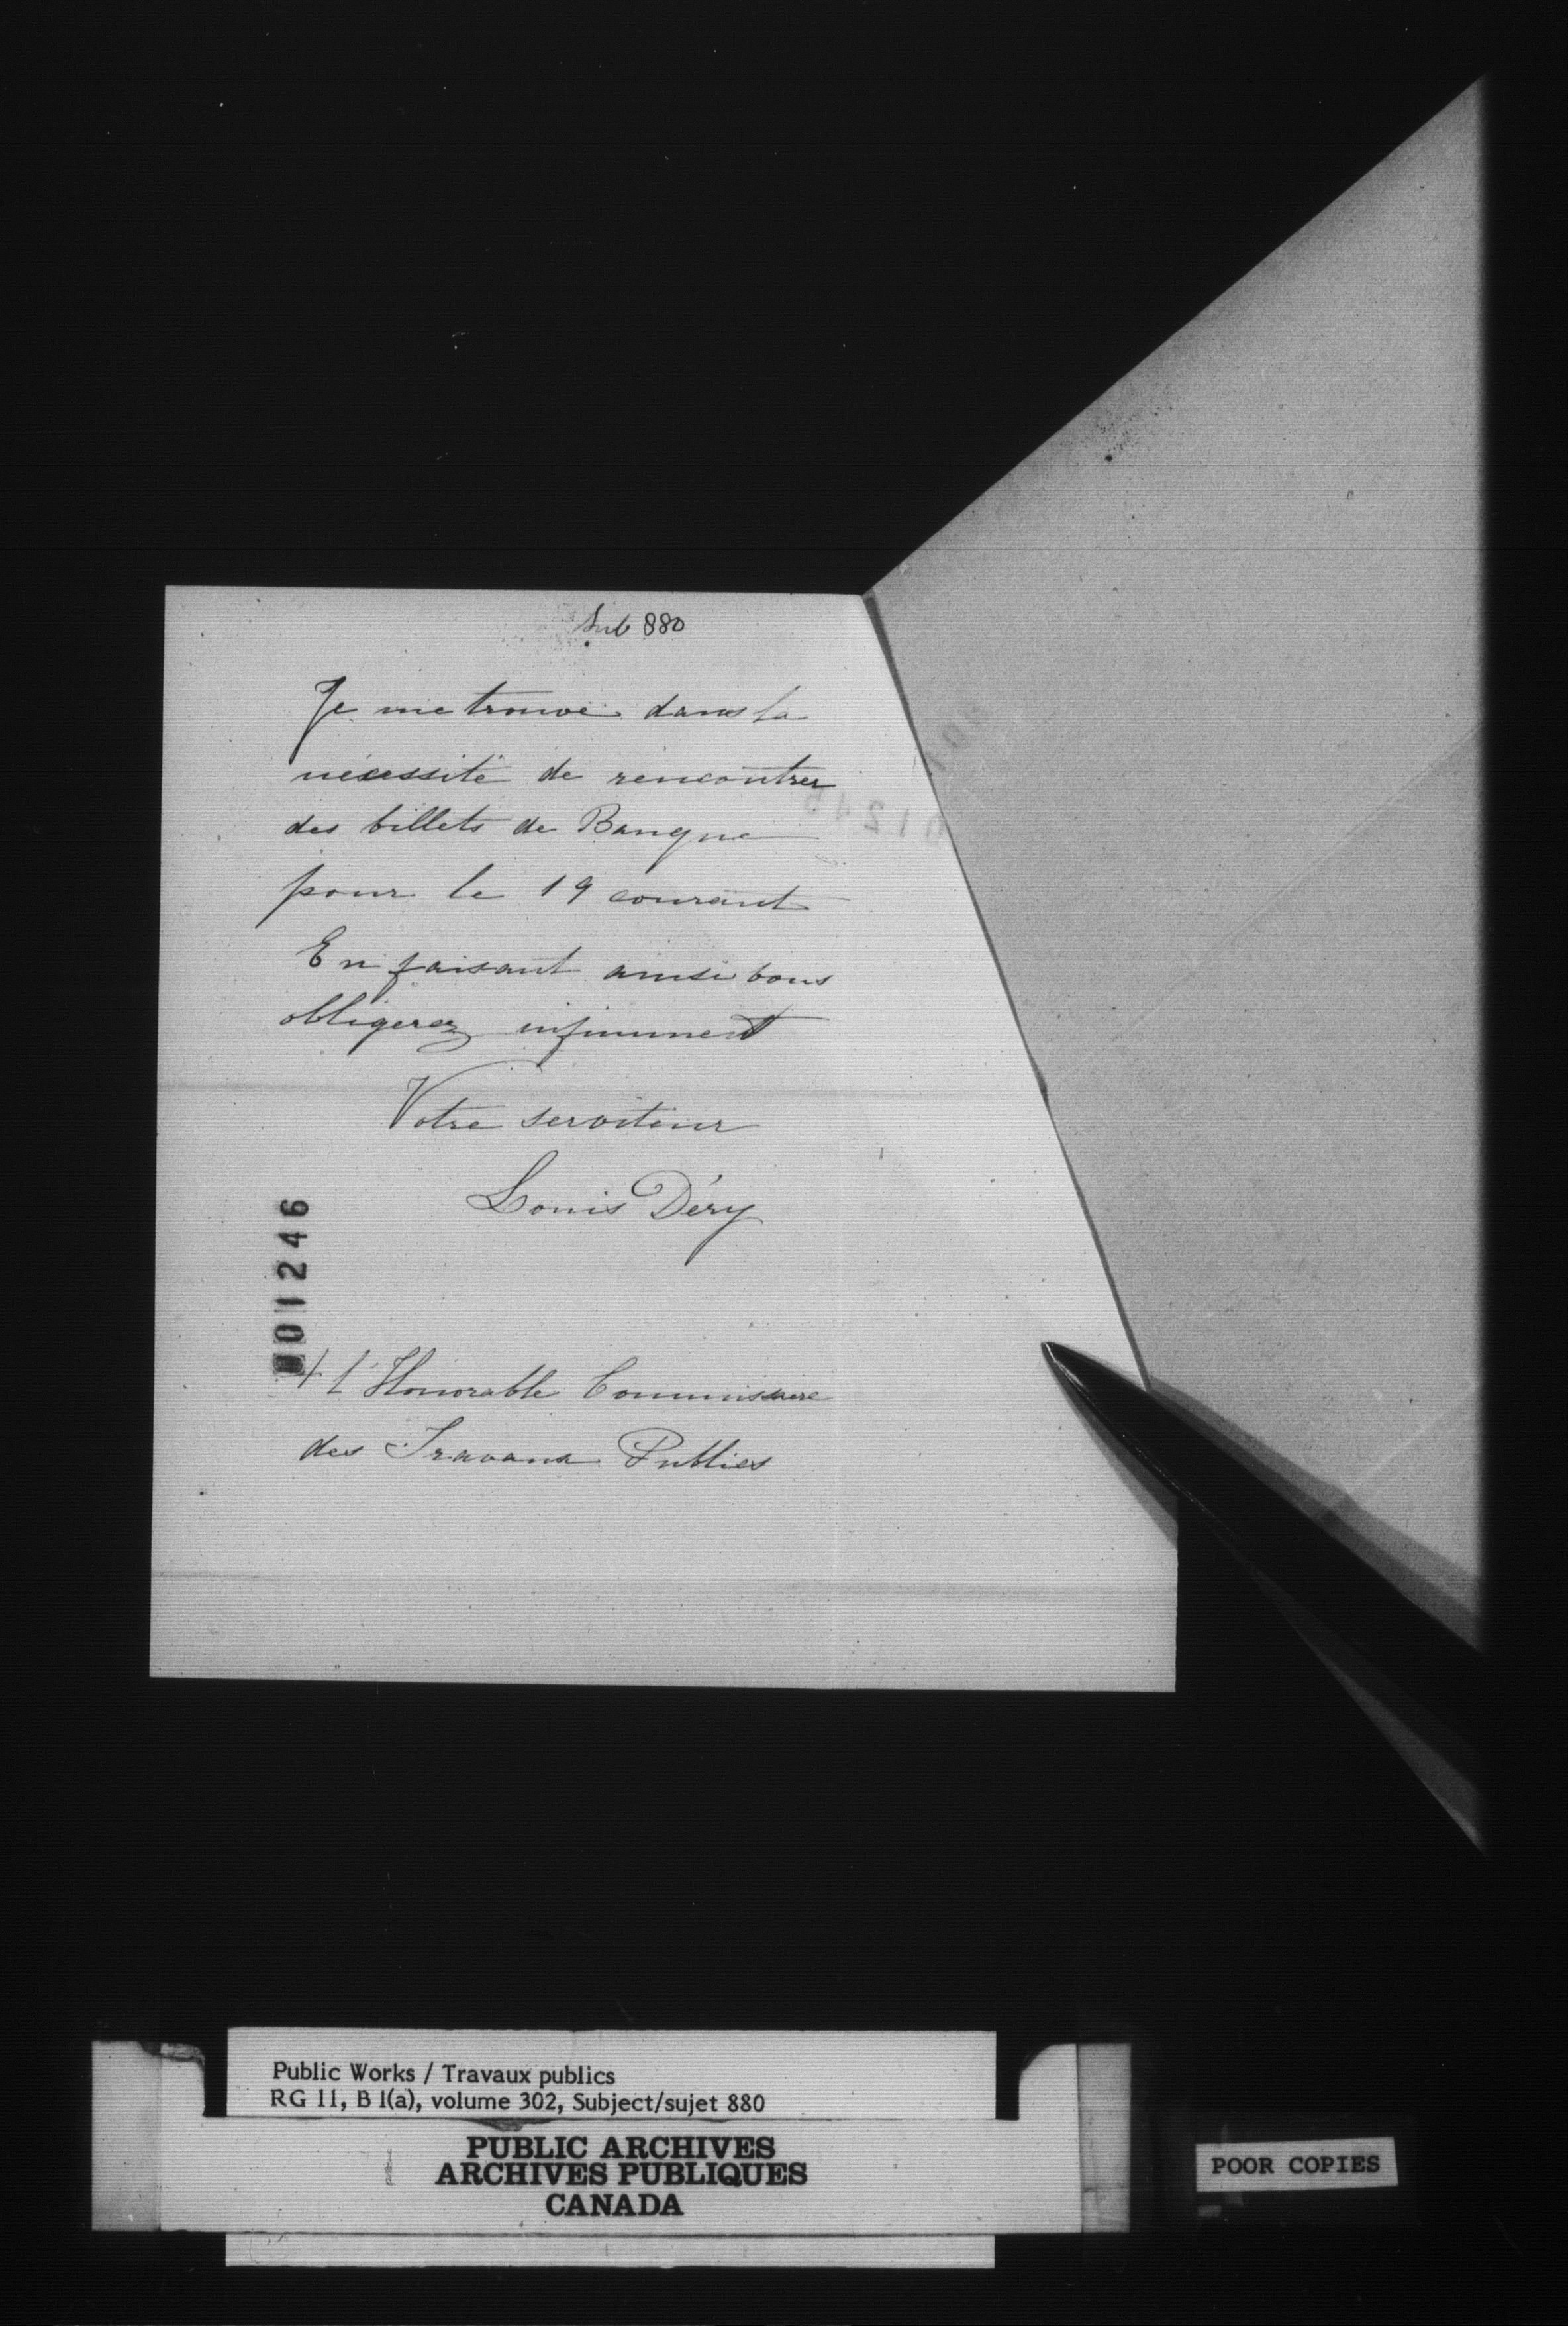 Sub 880
Je me trouve dans la
nécessité de rencontrer
des billets de Banque
pour le 19 courant
En faisant ainsi vous
obligerez infiniment
Votre serviteur
Louis Déry
01246
A l'Honorable Commissaire
des Travaux Publics
Public Works / Travaux publics
RG 11, B 1(a), volume 302, Subject/sujet 880
PUBLIC ARCHIVES
ARCHIVES PUBLIQUES
CANADA
POOR COPIES